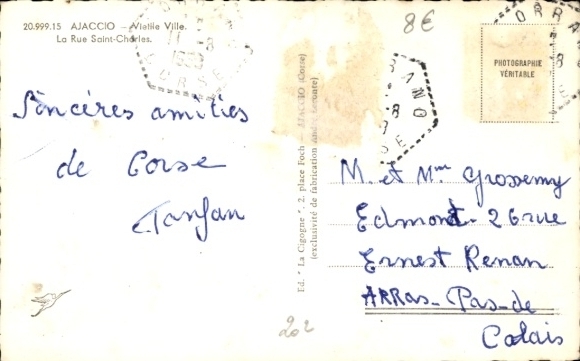 20.999.15 AJACCIO – Vieille Ville.
La Rue Saint-Charles.
8€
Sincères amitiés
de Corse
PHOTOGRAPHIE
VÉRITABLE
Ed. "La Cigogne", 2, place Foch - AJACCIO (Corse)
(exclusivité de fabrication André Leconte)
M. et Mme Grossemy
Edmond. 26 rue
Ernest Renan
ARRas-Pas-de
Calais
202